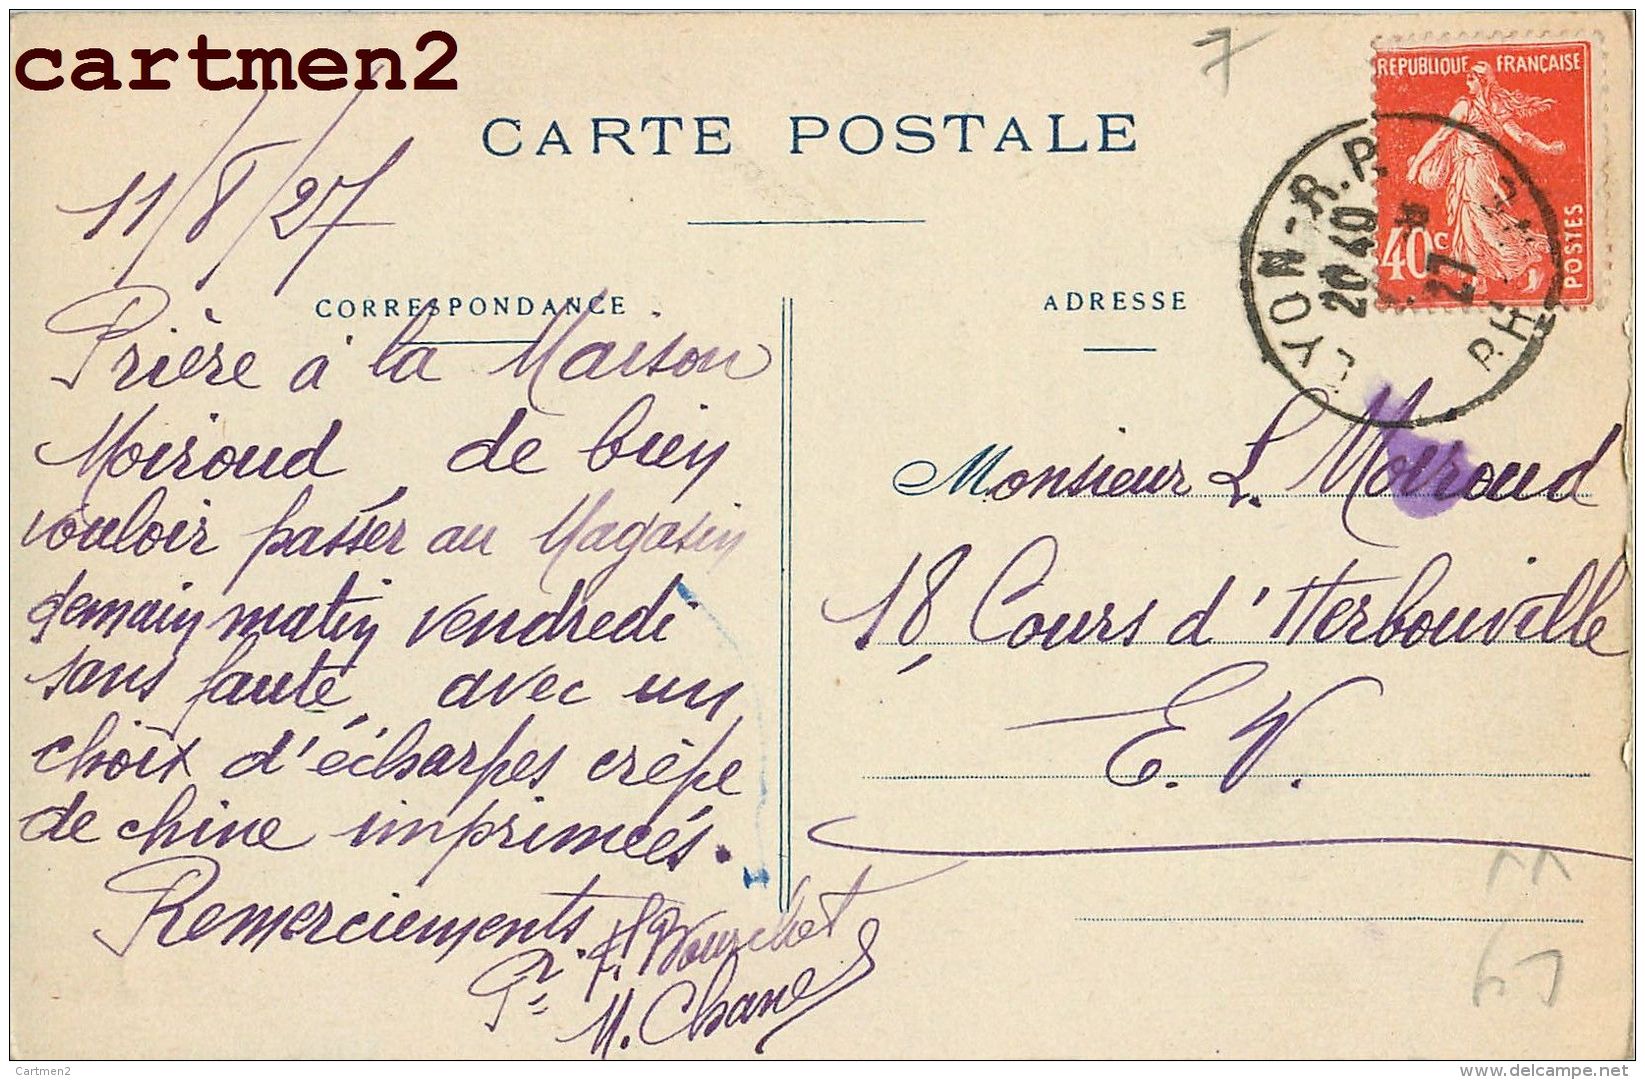 cartmen2
7
CARTE POSTALE
REPUBLIQUE FRANÇAISE
40c
POSTES
LYON-R.P.
20 40
27
RHONE
11/8/27
CORRESPONDANCE
ADRESSE
Prière à la Maison
Moiroud de bien
vouloir passer au Magasin
demain matin vendredi
sans faute, avec un
choix d'écharpes crêpe
de chine imprimées.
Remerciements
Pr. F. Bourchet
M. Chane
Monsieur L. Moiroud
18, Cours d'Herbouville
E. V.
Cartmen2
www.delcampe.net